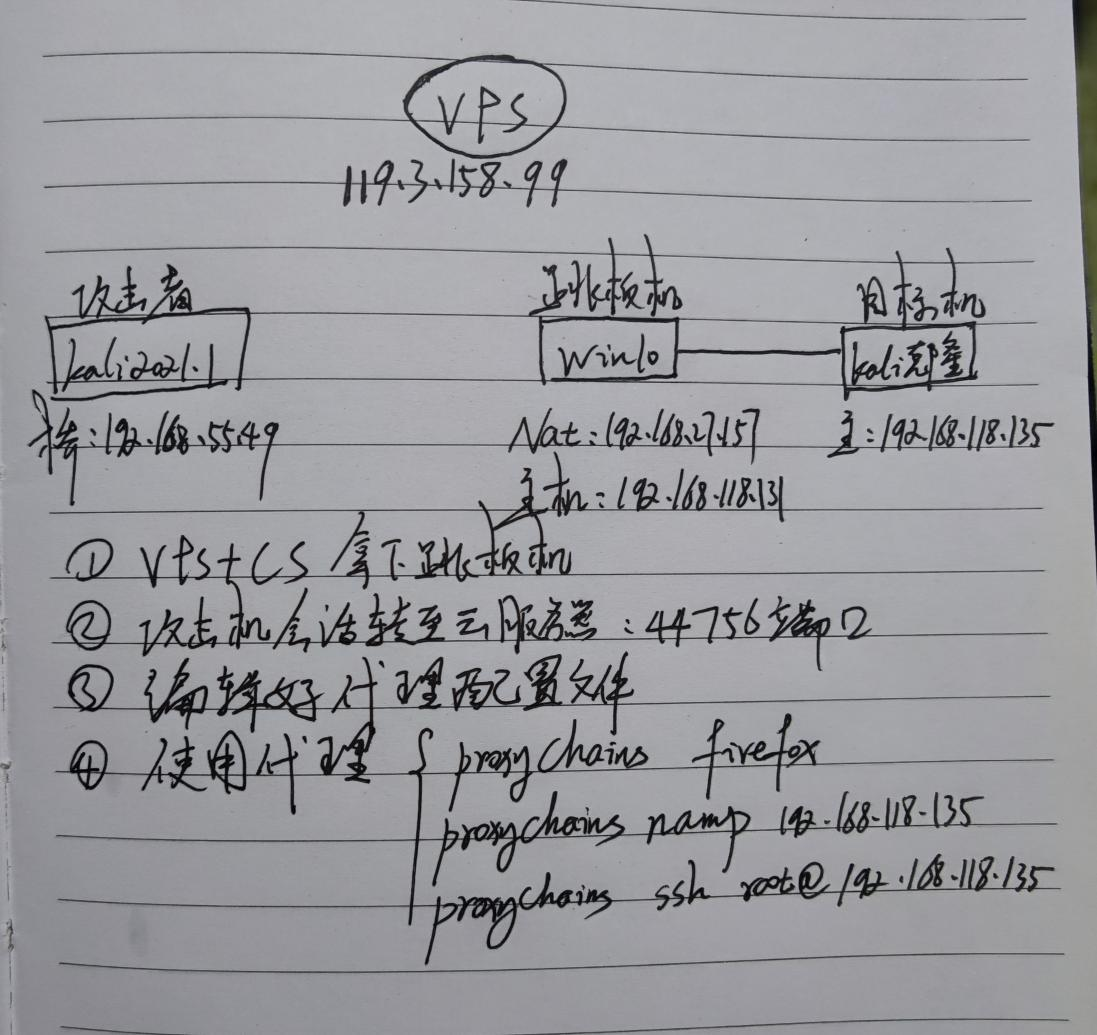 VPS
119.3.158.99
攻击者 跳板机 目标机
kali2021.1 Win10 kali郭鑫
桥:192.168.55.49 Nat:192.168.27.157 主:192.168.118.135
主机:192.168.118.131
① VPS+CS 拿下跳板机
② 攻击机会话转至云服务器:44756端口
③ 编辑好代理配置文件
④ 使用代理 { proxychains firefox
proxychains namp 192.168.118.135
proxychains ssh root@192.168.118.135